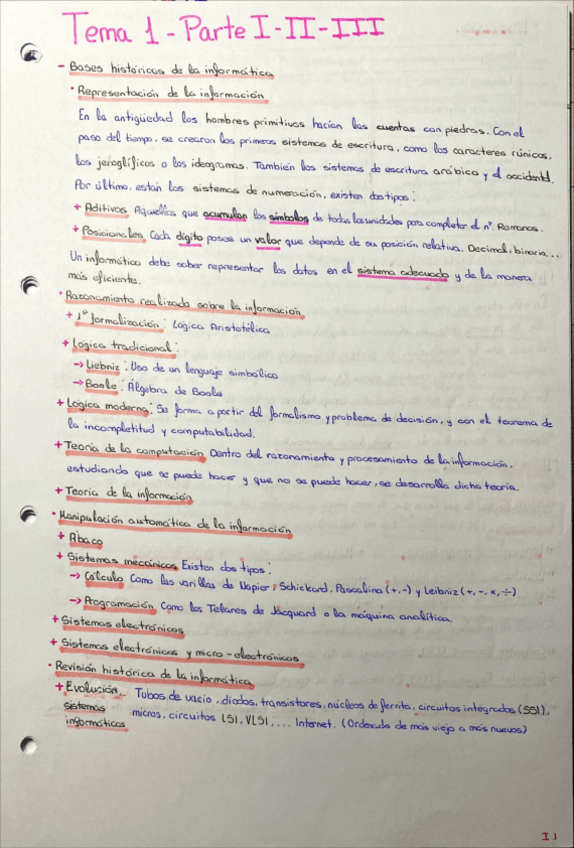 Tema 1 - Parte I - II - III
- Bases históricas de la informática
· Representación de la información
En la antigüedad los hombres primitivos hacían las cuentas con piedras. Con el
paso del tiempo, se crearon los primeros sistemas de escritura, como los caracteres rúnicos,
los jeroglíficos o los ideogramas. También los sistemas de escritura arábico y el occidental.
Por último, están los sistemas de numeración, existen dos tipos:
+ Aditivos Aquellos que acumulan los símbolos de todas las unidades para completar el nº. Romanos.
+ Posicionales Cada dígito posee un valor que depende de su posición relativa. Decimal, binario...
Un informático debe saber representar los datos en el sistema adecuado y de la manera
más eficiente.
· Razonamiento realizado sobre la información
+ 1ª formalización: Lógica Aristotélica
+ Lógica tradicional:
→ Liebniz: Uso de un lenguaje simbólico
→ Boole: Álgebra de Boole
+ Lógica moderna: Se forma a partir del formalismo y problema de decisión, y con el teorema de
la incompletitud y computabilidad.
+ Teoría de la computación Dentro del razonamiento y procesamiento de la información,
estudiando que se puede hacer y que no se puede hacer, se desarrolla dicha teoría.
+ Teoría de la información
· Manipulación automática de la información
+ Ábaco
+ Sistemas mecánicos Existen dos tipos:
→ Cálculo Como las varillas de Napier, Schickard, Pascalina (+,-) y Leibniz (+, -, x, ÷)
→ Programación Como los Telares de Jacquard o la máquina analítica.
+ Sistemas electrónicos
+ Sistemas electrónicos y micro-electrónicos
· Revisión histórica de la informática
+ Evolución Tubos de vacio, diodos, transistores, núcleos de ferrita, circuitos integrados (SSI),
sistemas micros, circuitos LSI, VLSI, ... Internet. (Ordenado de más viejo a más nuevos)
informáticos
I 1